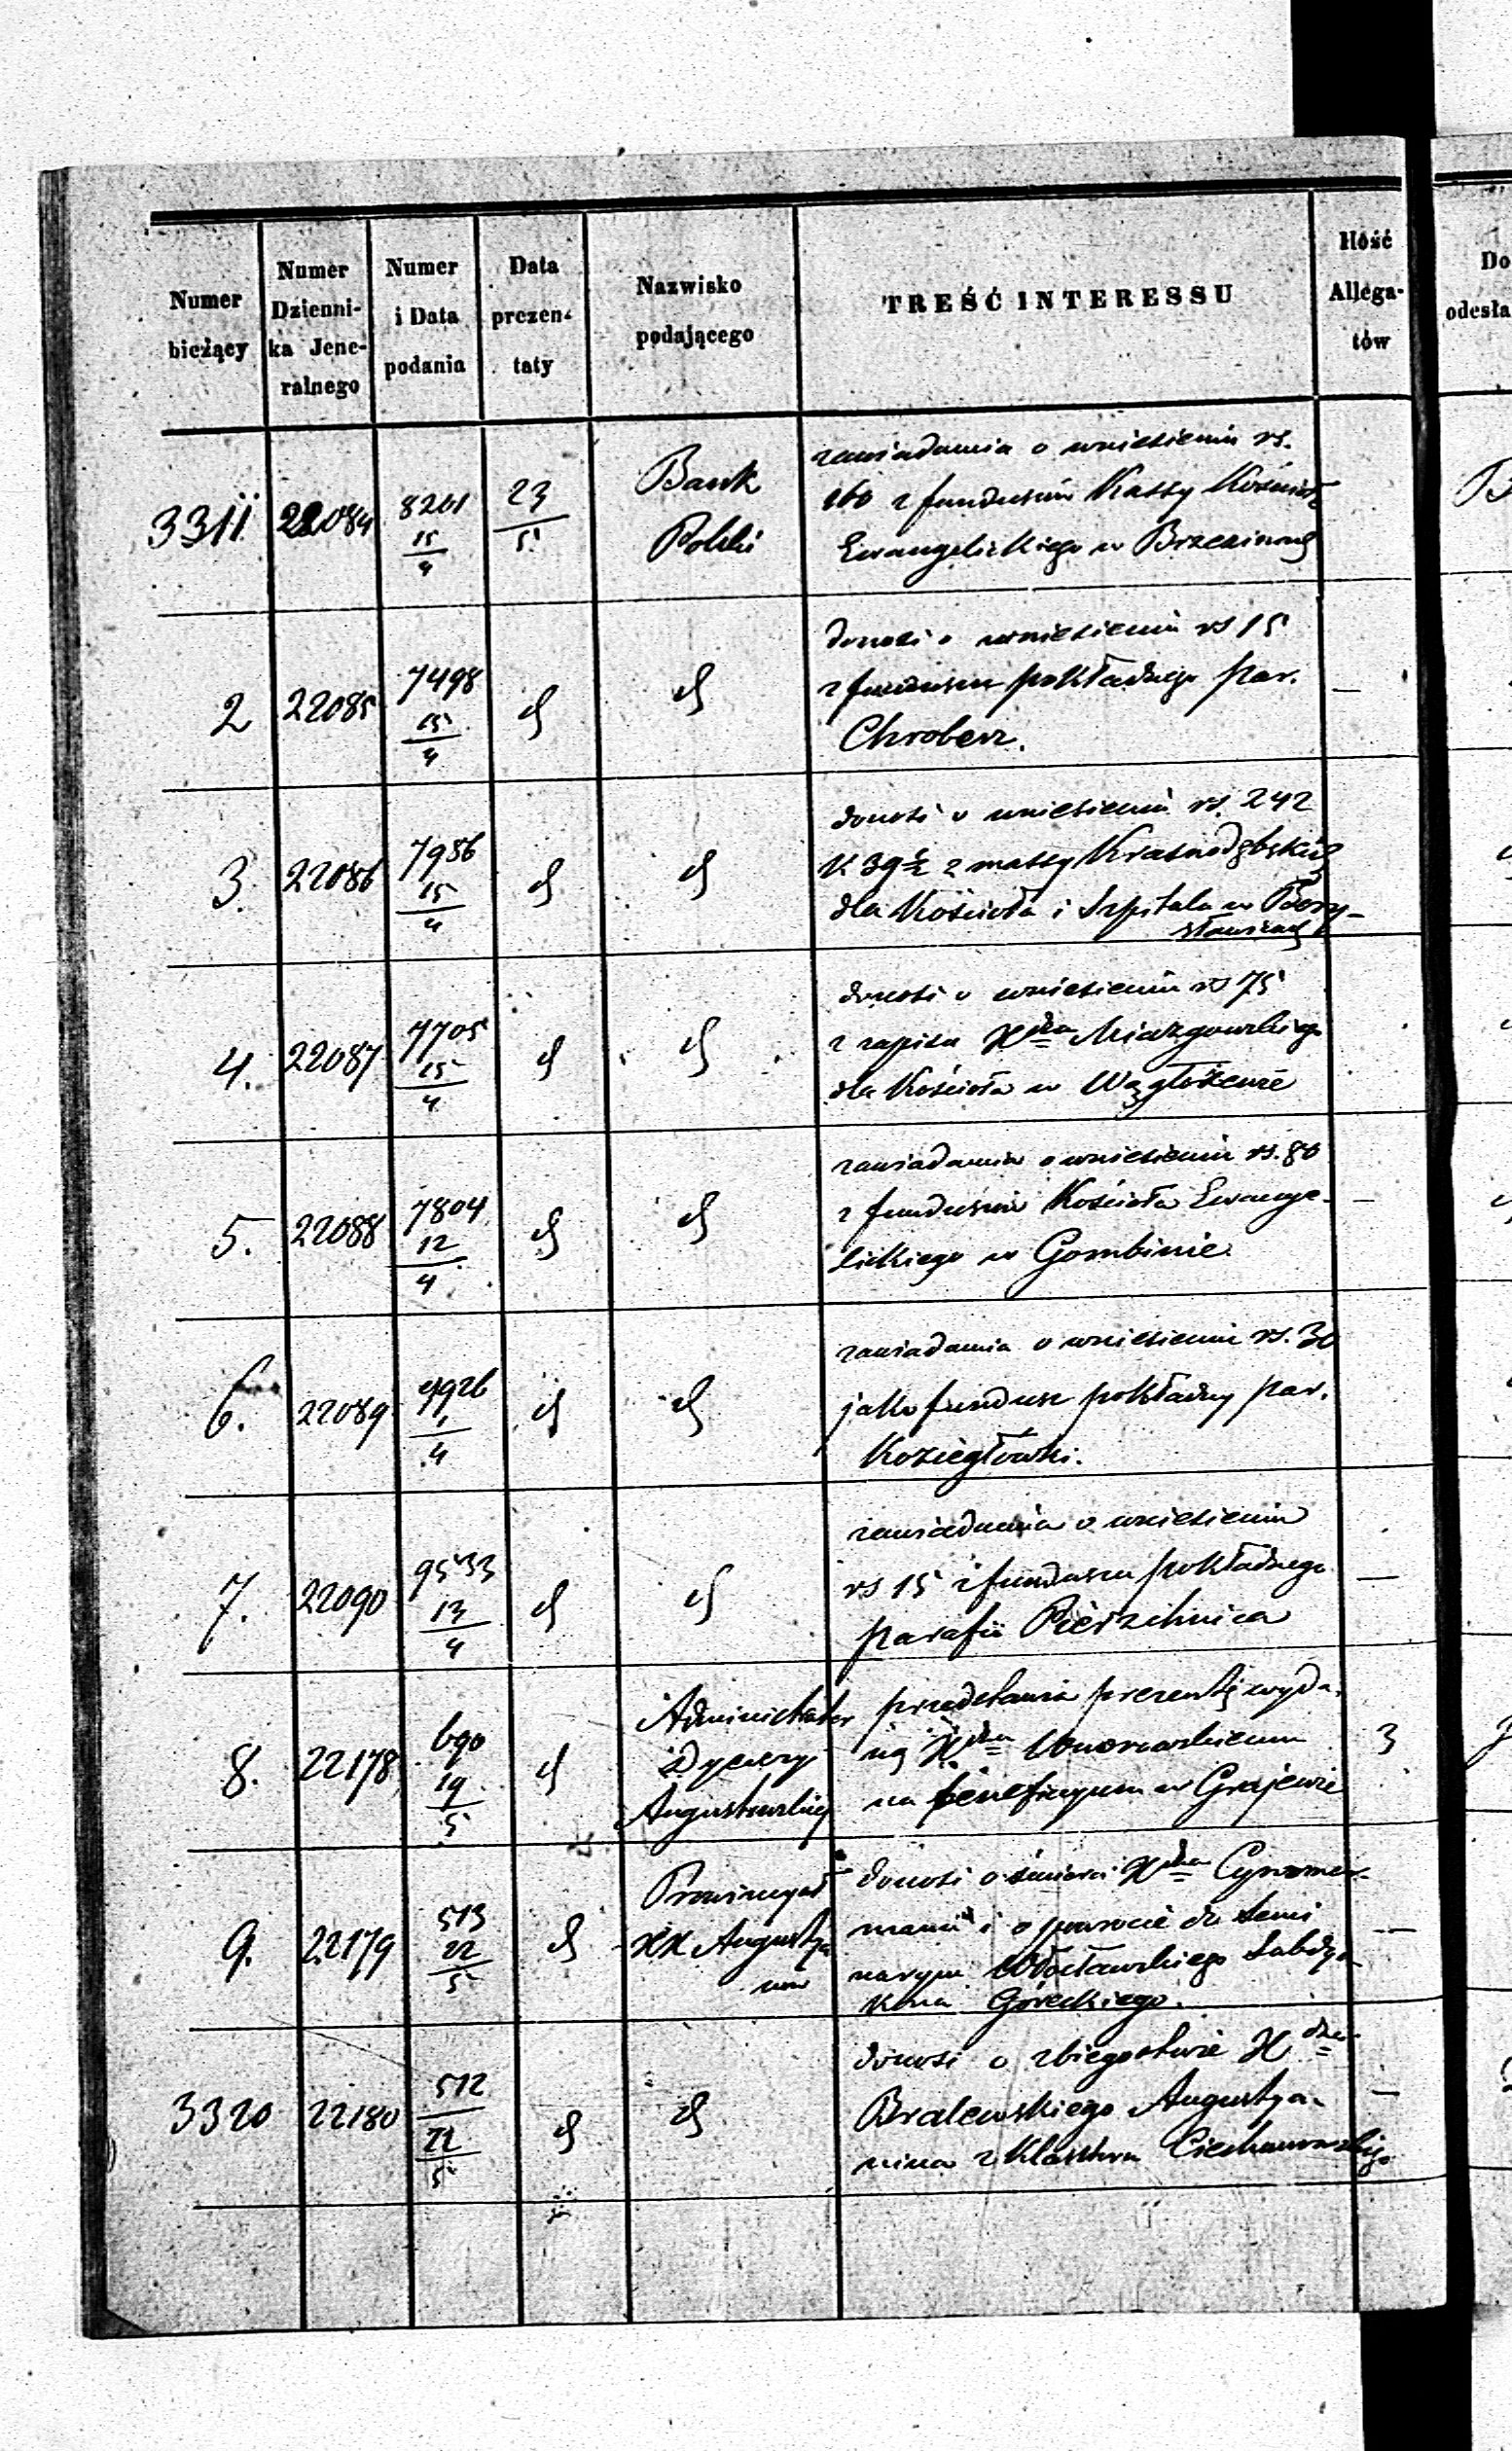 Numer bieżący
Numer Dzienni-ka Jene-ralnego
Numer i Data podania
Data prezen-taty
Nazwisko podającego
TREŚĆ INTERESSU
Ilość Allega-tów
Do
odesła
3311 22084 8201 15/4 23/5 Bank Polski
zawiadamia o wniesieniu rs.
160 z funduszów Kassy Kościoła
Ewangelickiego w Brzezinach
2 22085 7498 15/4
donosi o wniesieniu rs 15
z funduszu pokładnego par. —
Chroberz.
3. 22086 7986 15/4
donosi o wniesieniu rs. 242
K 39½ z massy Krasnodębskich
dla Kościoła i Szpitala w Bory-
sławicach
4. 22087 7705 15/4
donosi o wniesieniu rs 75
z zapisu Xdza Miazgowskiego
dla Kościoła w
5. 22088 7804 12/4
zawiadamia o wniesieniu rs. 80
z funduszów Kościoła Ewange- —
lickiego w Gombinie.
6. 22089 1/4
zawiadamia o wniesieniu rs. 30
jako fundusz pokładny par.
Koziegłówki.
7. 22090 9533 13/4
zawiadamia o wniesieniu
rs 15 z funduszu pokładnego —
parafii Pierzchnica
8. 22178 690 19/5
Administrator
Dyecezyi
Augustowskiej
przedstawia prezentę wyda-
ną Xdzu 3
na beneficyum w Grajewie
9. 22179 513 22/5
Prowincyał
XX Augustya
nów
donosi o śmierci Xdza Cynamer-
mana i o powrocie do Semi —
naryum Włocławskiego Subdya-
kona Góreckiego.
3320 22180 512 22/5
donosi o zbiegostwie Xdza
Bralewskiego Augustya- —
nina z Klasztoru Ciechanowskiego